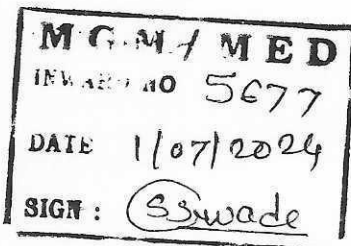 MGM / MED
INWARD NO 5677
DATE 1/07/2024
SIGN : SSwade